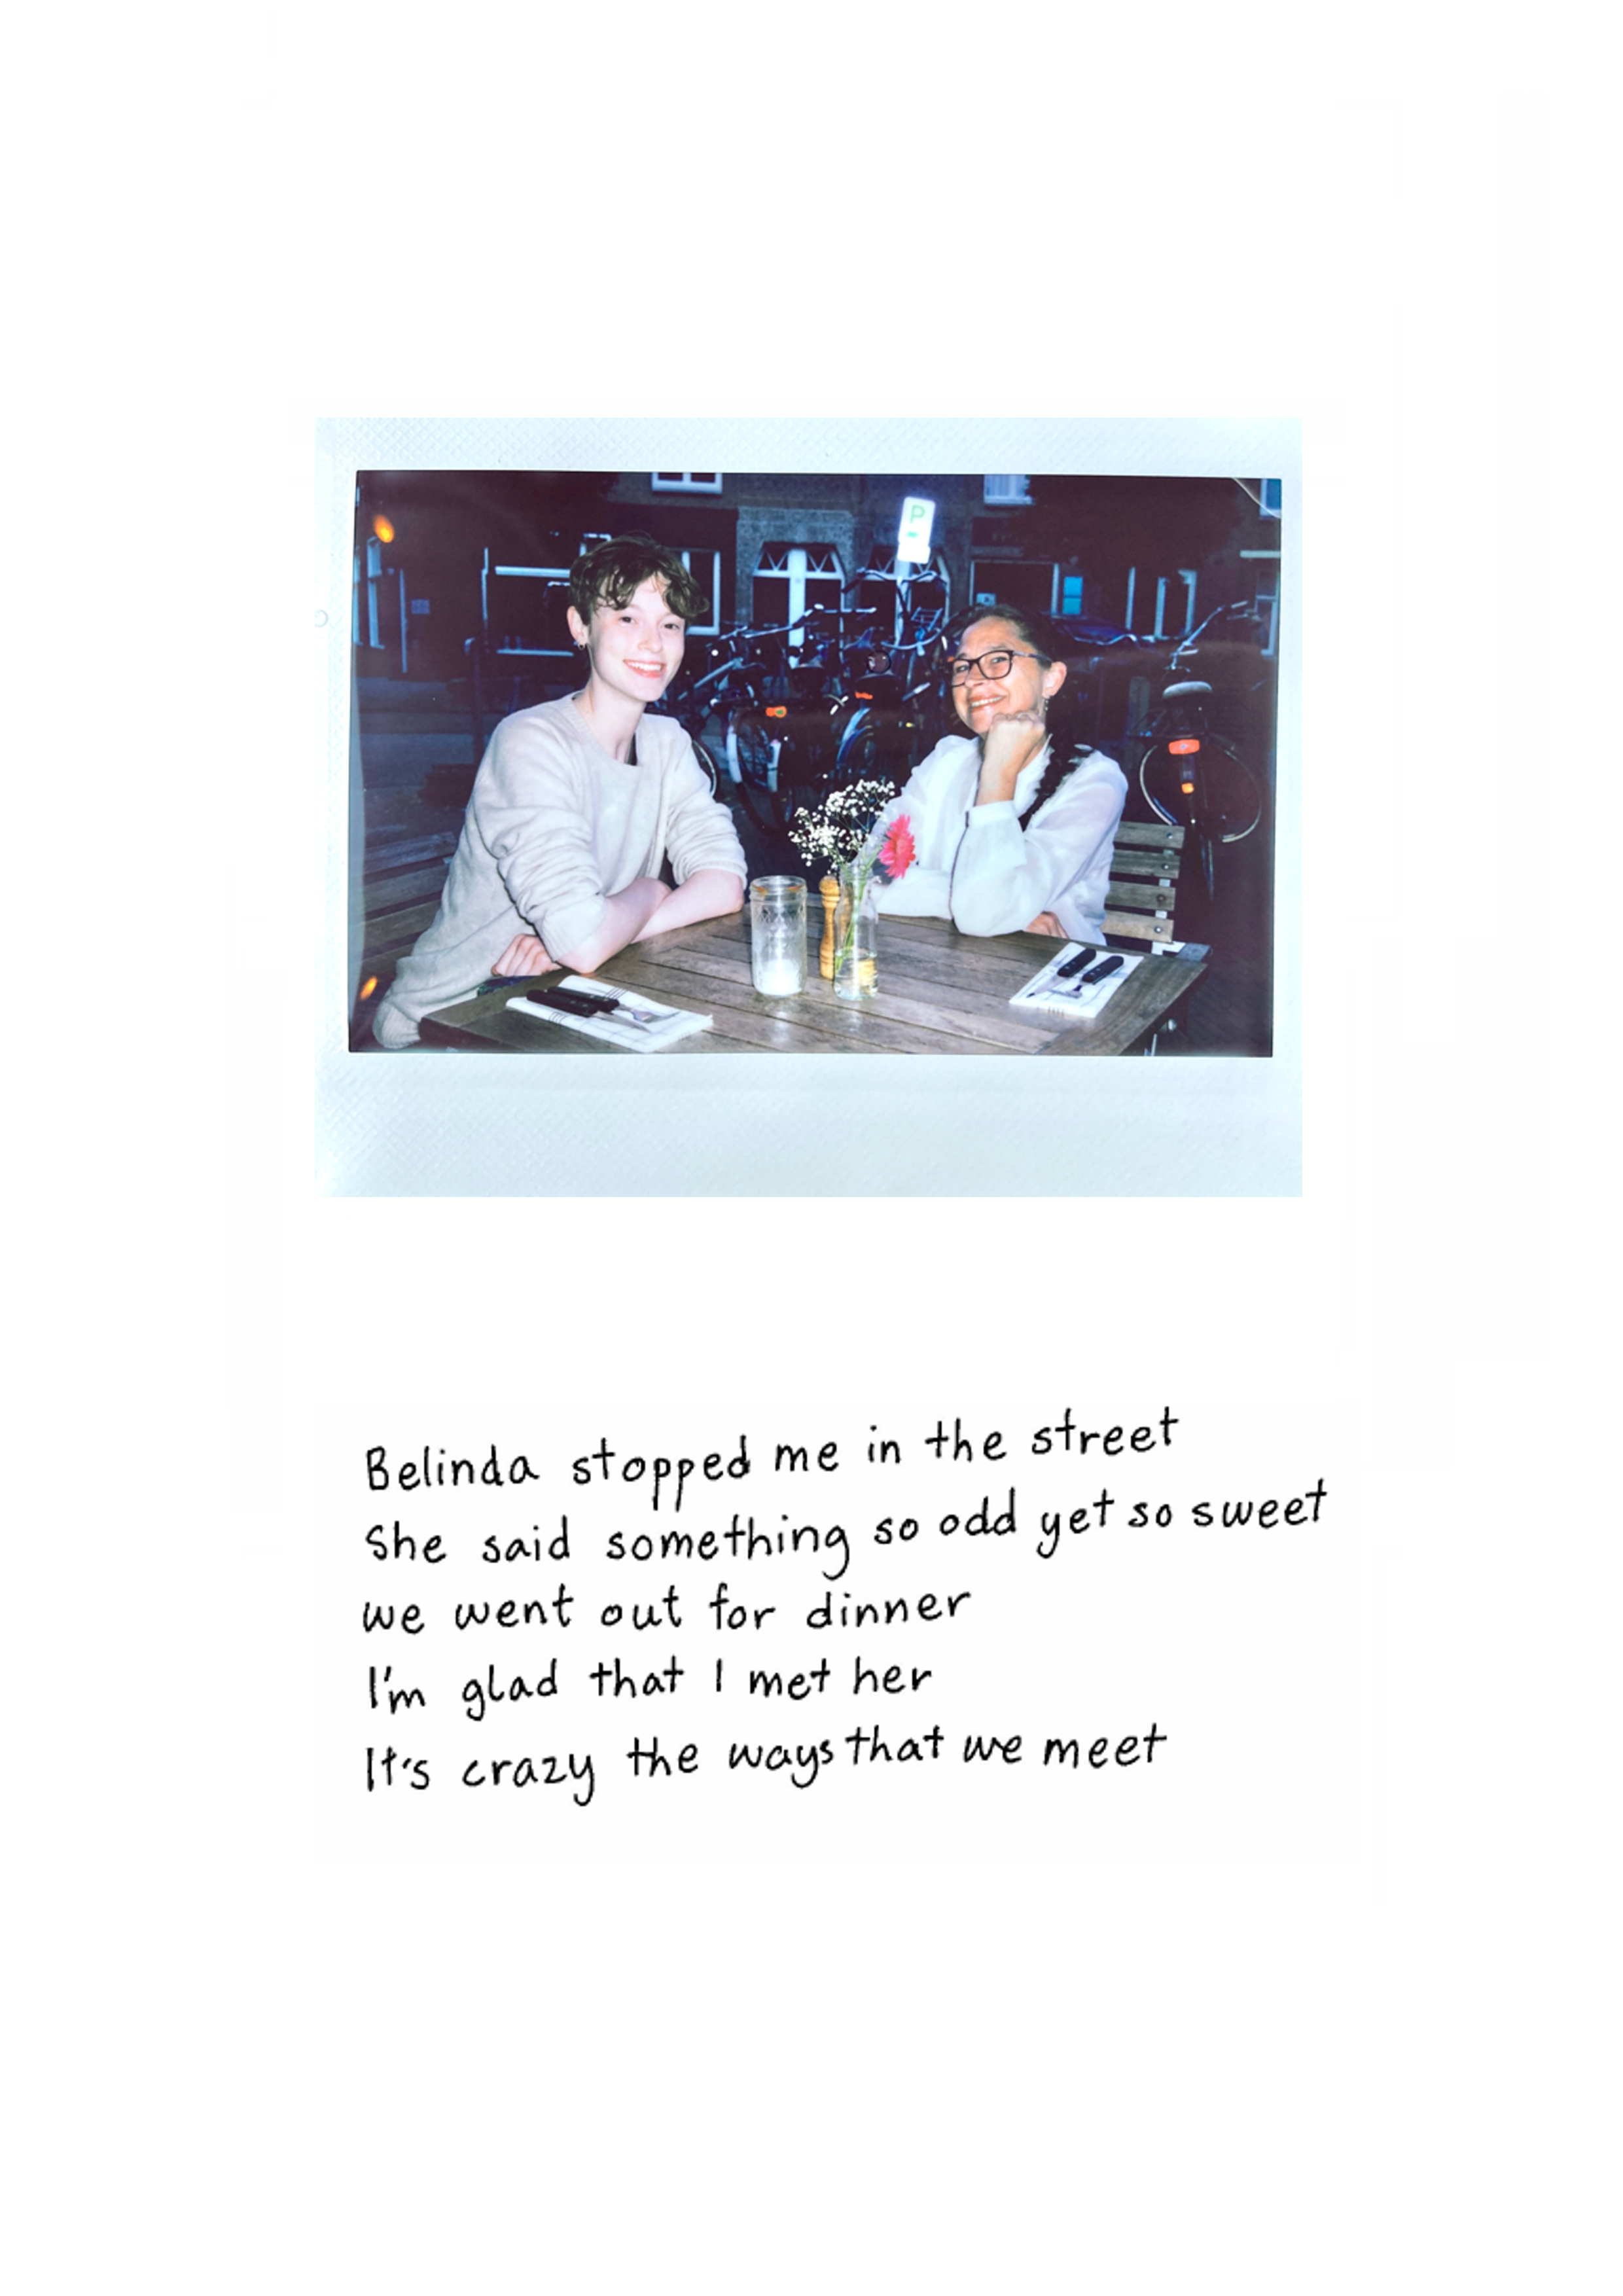 P
Belinda stopped me in the street
She said something so odd yet so sweet
we went out for dinner
I'm glad that I met her
It's crazy the ways that we meet